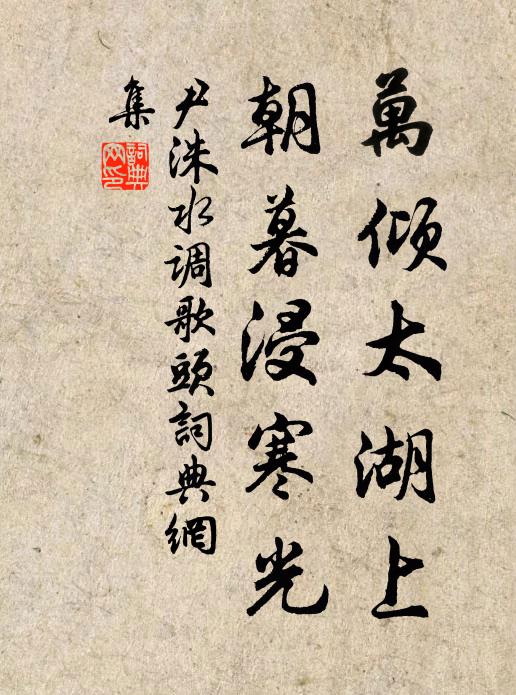 萬傾太湖上
朝暮浸寒光
尹洙水调歌頭詞典網
集
詞典網印